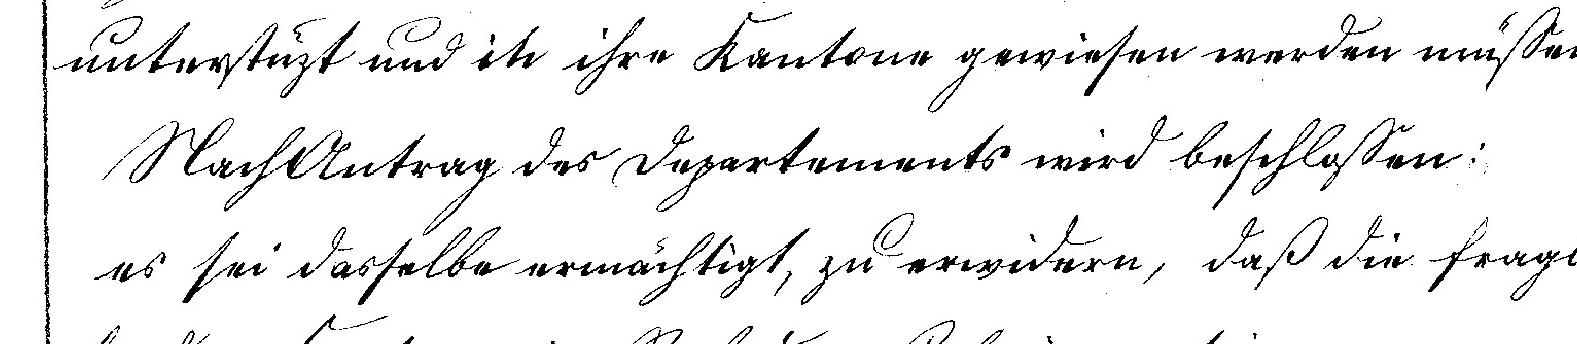 unterstüzt und in ihre Kantone gewiesen werden müssen
Nach Antrag des Departements wird beschlossen:
es sei dasselbe ermächtigt, zu erwidern, daß die frage